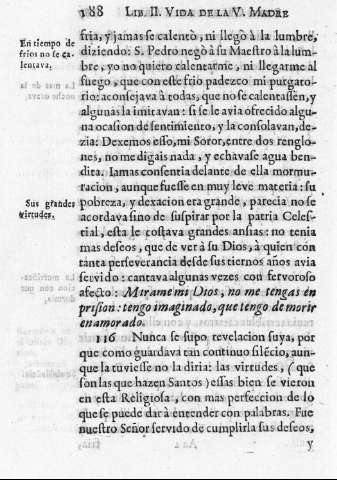 188 LIB. II. VIDA DE LA V. MADRE
En tiempo de
frios no se ca-
lentava.
fria, y jamas se calentò, ni llegò à la lumbre,
diziendo: S. Pedro negò à su Maestro à la lum-
bre, yo no quiero calentarme, ni llegarme al
fuego, que con este frio padezco mi purgato-
rio: aconsejava à todas, que no se calentassen, y
algunas la imitavan: si se le avia ofrecido algu-
na ocasion de sentimiento, y la consolavan, de-
zia: Dexemos esso, mi Soror, entre dos renglo-
nes, no me digais nada, y echavase agua ben-
dita. Iamas consentia delante de ella mormu-
racion, aunque fuesse en muy leve materia: su
Sus grandes
virtudes.
pobreza, y dexacion era grande, parecia no se
acordava sino de suspirar por la patria Celes-
tial, esta le costava grandes ansias: no tenia
mas deseos, que de ver à su Dios, à quien con
tanta perseverancia desde sus tiernos años avia
servido: cantava algunas vezes con fervoroso
afecto: Mirame mi Dios, no me tengas en
prision: tengo imaginado, que tengo de morir
enamorado.
116 Nunca se supo revelacion suya, por
que como guardava tan continuo silẽcio, aun-
que la tuviesse no la diria: las virtudes, (que
son las que hazen Santos) essas bien se vieron
en esta Religiosa, con mas perfeccion de lo
que se puede dar à entender con palabras. Fue
nuestro Señor servido de cumplirla sus deseos,
y